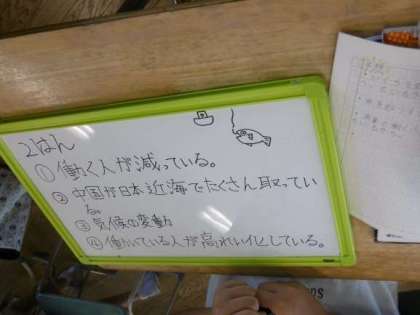 2はん
①働く人が減っている。
②中国が日本近海でたくさん取ってい
る。
③気候の変動
④働いている人が高れい化している。